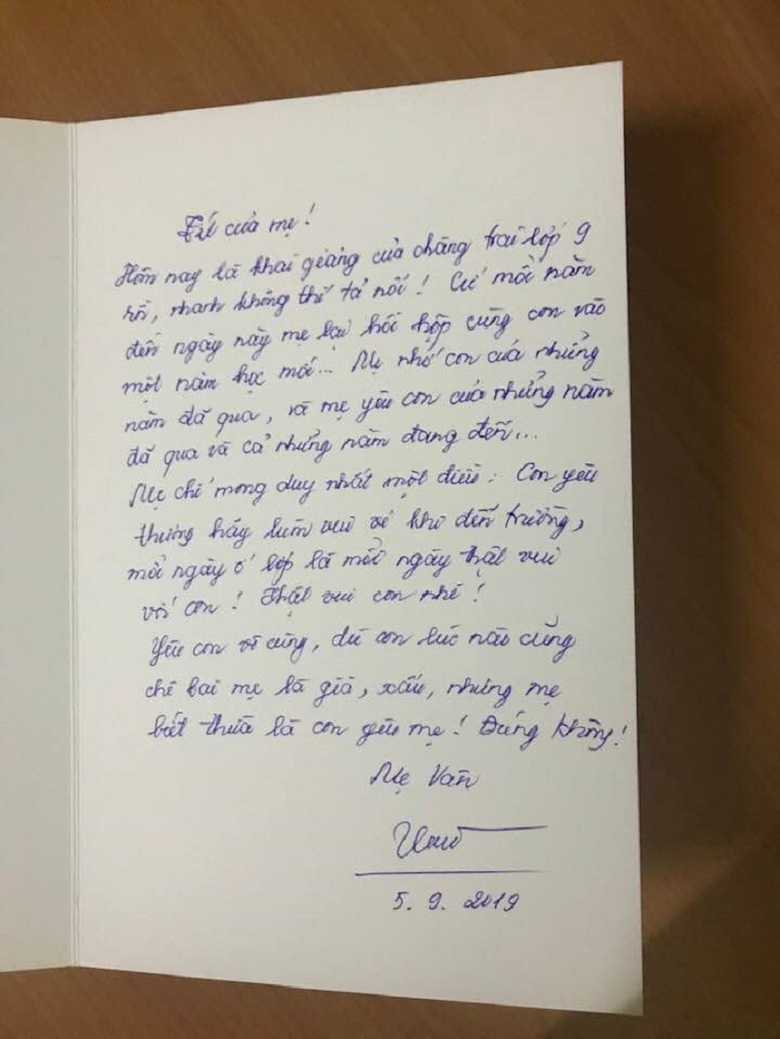 của mẹ!
Hôm nay là khai giảng của chàng trai lớp 9
rồi, nhanh không thể tả nổi! Cứ mỗi năm
đến ngày này mẹ lại hồi hộp cùng con vào
một năm học mới... Mẹ nhớ con của những
năm đã qua, và mẹ yêu con của những năm
đã qua và cả những năm đang đến...
Mẹ chỉ mong duy nhất một điều: Con yêu
thương hãy luôn vui vẻ khi đến trường,
mỗi ngày ở lớp là mỗi ngày thật vui
với con! Thật vui con nhé!
Yêu con vô cùng, dù con lúc nào cũng
chê bai mẹ là già, xấu, nhưng mẹ
biết thừa là con yêu mẹ! Đúng không!
Mẹ Vân
5. 9. 2019